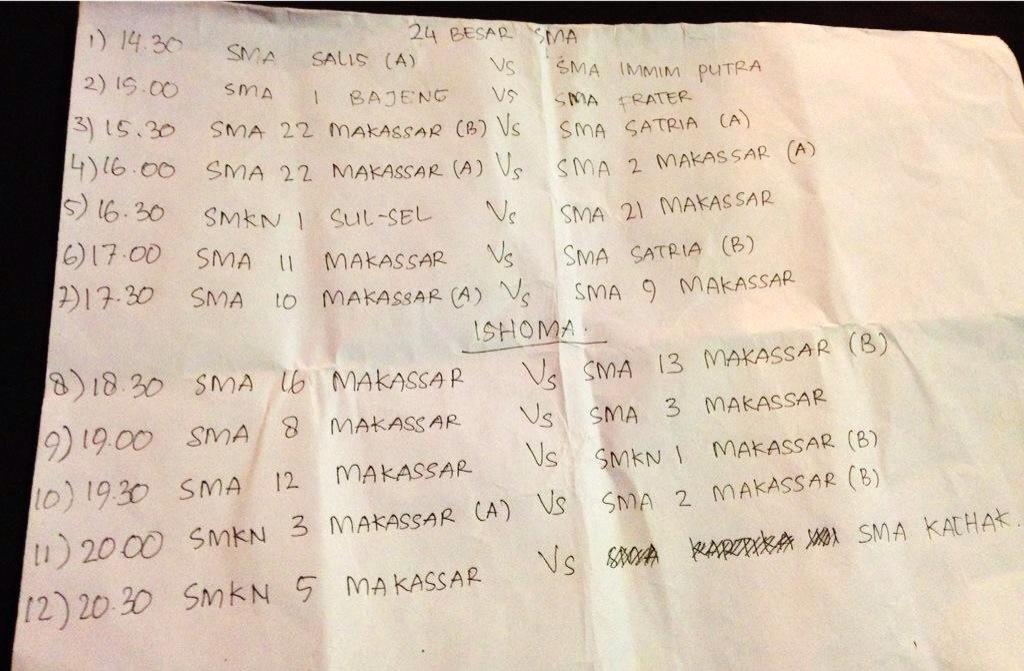 24 BESAR SMA
1) 14.30 SMA SALIS (A) VS SMA IMMIM PUTRA
2) 15.00 SMA 1 BAJENG VS SMA FRATER
3) 15.30 SMA 22 MAKASSAR (B) Vs SMA SATRIA (A)
4) 16.00 SMA 22 MAKASSAR (A) Vs SMA 2 MAKASSAR (A)
5) 16.30 SMKN 1 SUL-SEL Vs SMA 21 MAKASSAR
6) 17.00 SMA 11 MAKASSAR Vs SMA SATRIA (B)
7) 17.30 SMA 10 MAKASSAR (A) Vs SMA 9 MAKASSAR
ISHOMA.
8) 18.30 SMA 16 MAKASSAR Vs SMA 13 MAKASSAR (B)
9) 19.00 SMA 8 MAKASSAR Vs SMA 3 MAKASSAR
10) 19.30 SMA 12 MAKASSAR Vs SMKN 1 MAKASSAR (B)
11) 20.00 SMKN 3 MAKASSAR (A) Vs SMA 2 MAKASSAR (B)
12) 20.30 SMKN 5 MAKASSAR Vs SMA KATHAK.